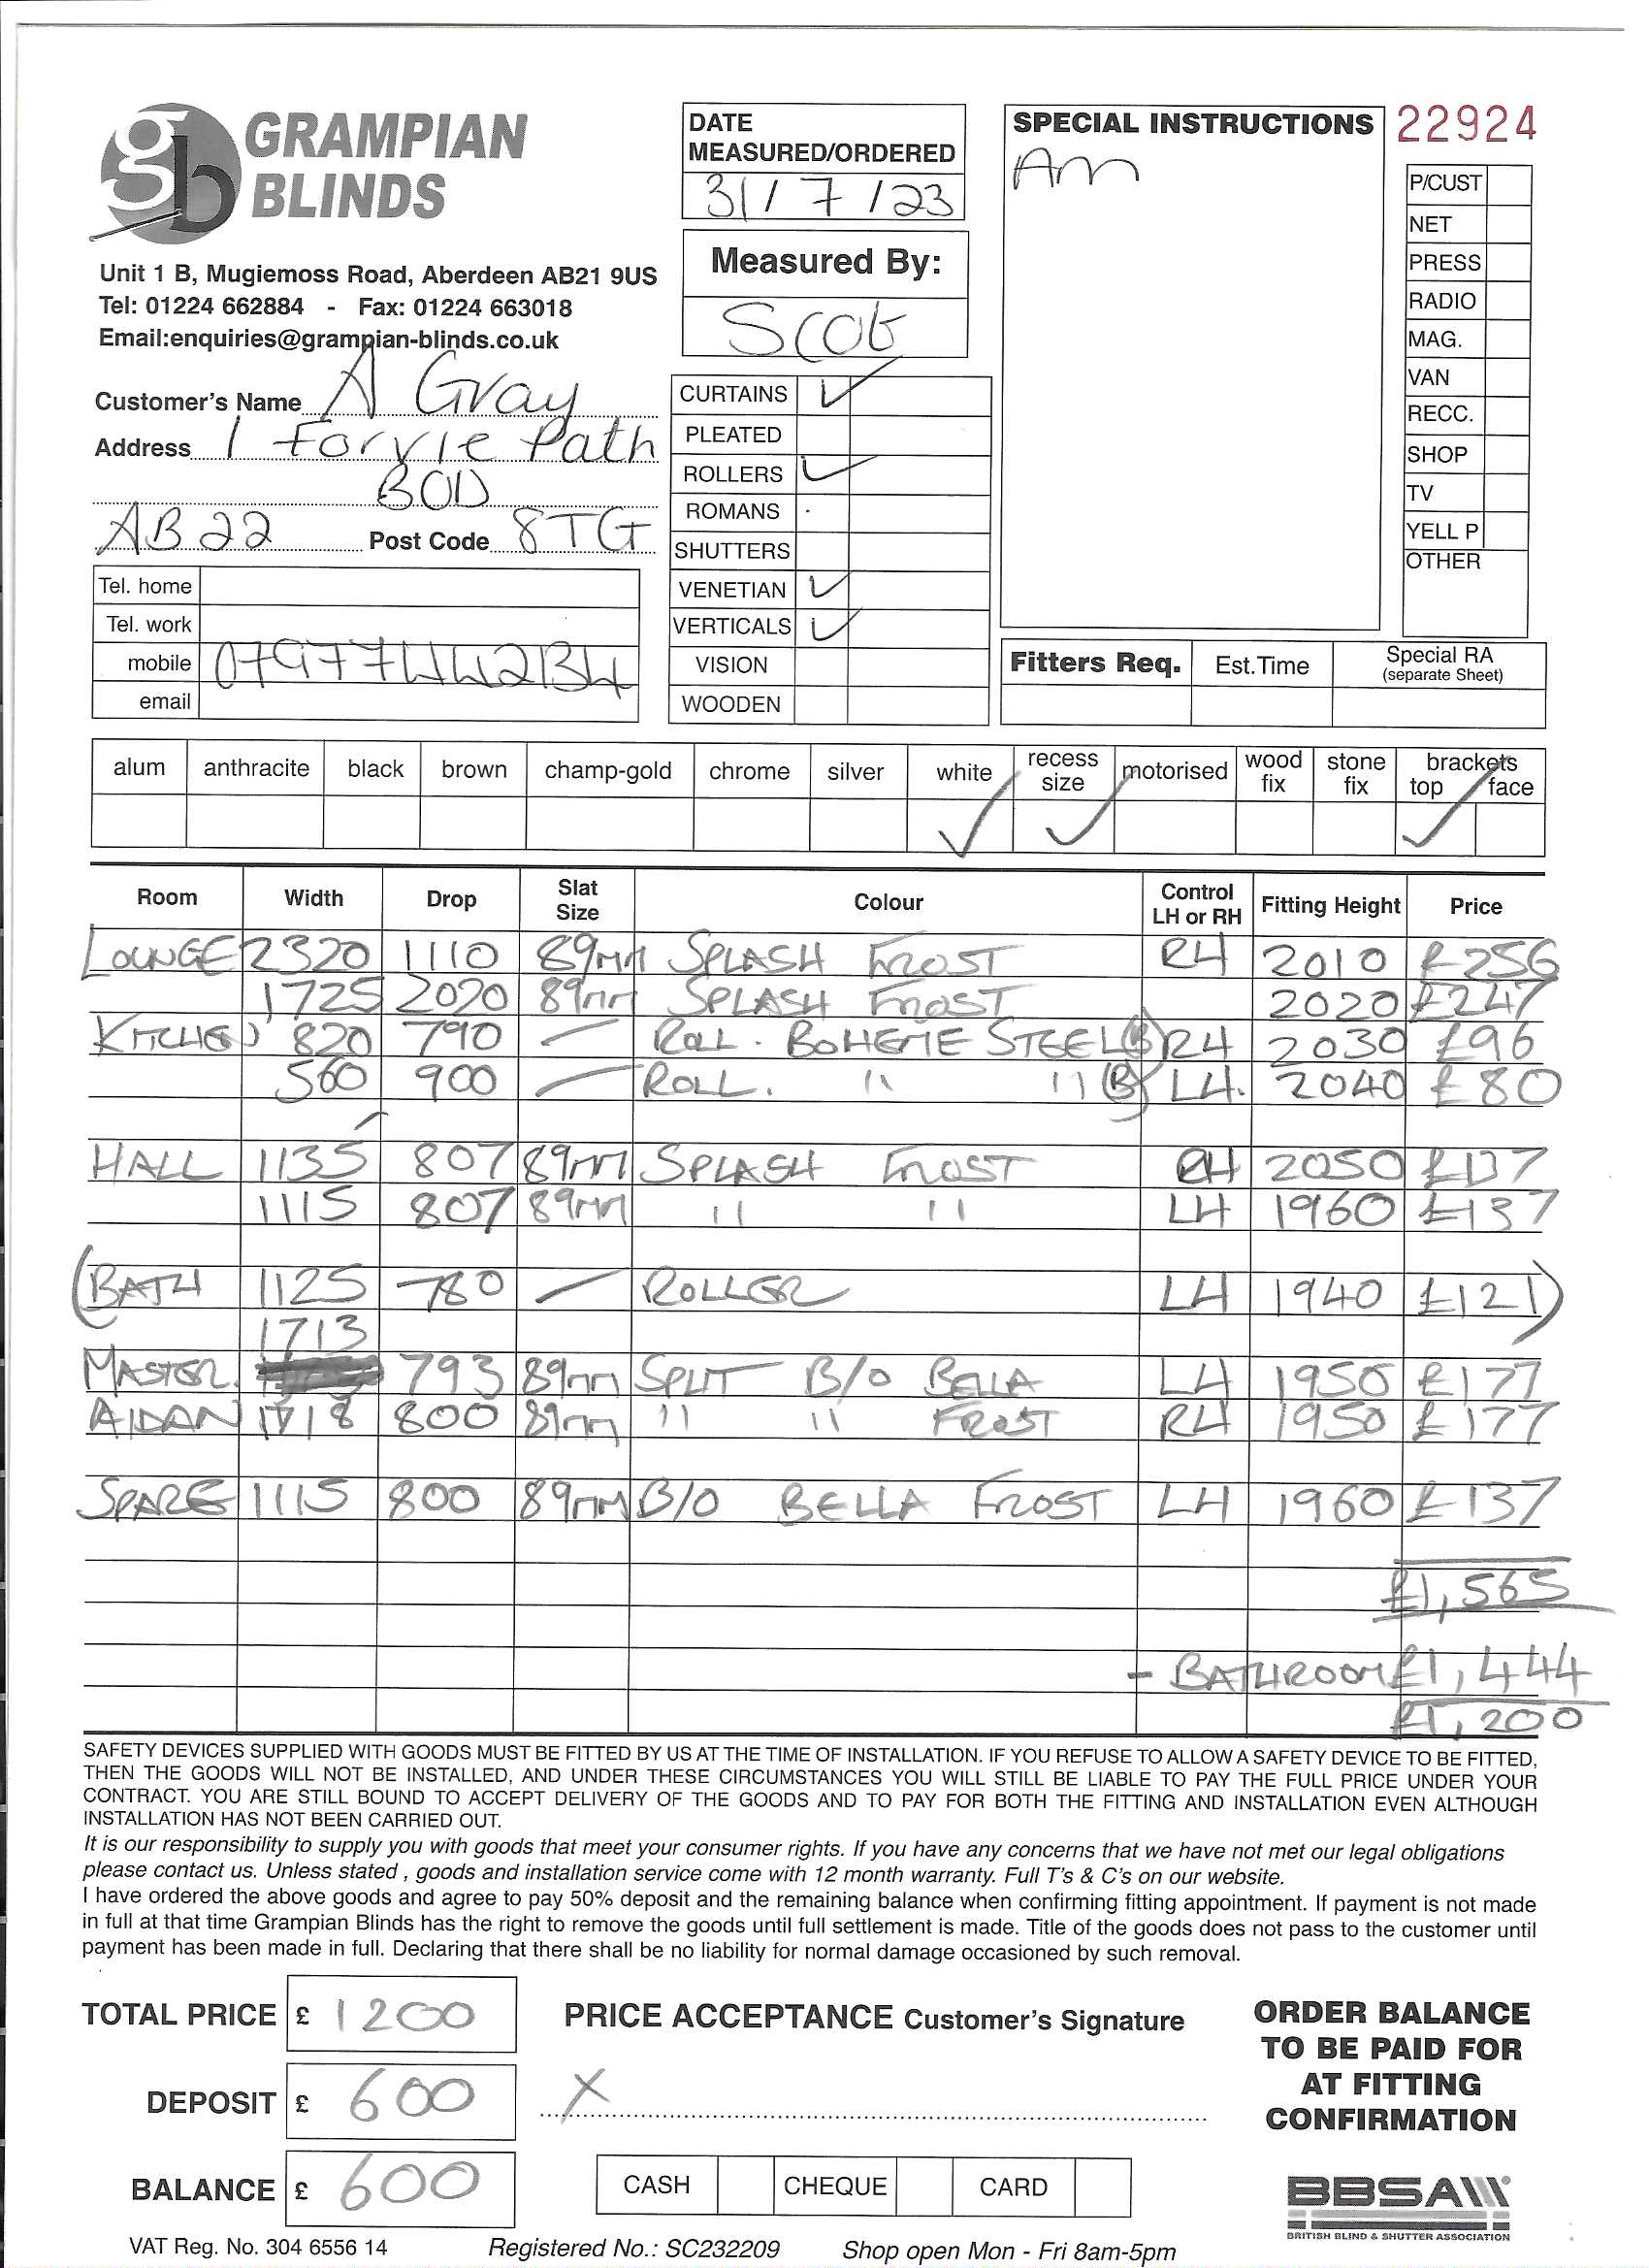 GRAMPIAN
BLINDS
Unit 1 B, Mugiemoss Road, Aberdeen AB21 9US
Tel: 01224 662884 - Fax: 01224 663018
Email:enquiries@grampian-blinds.co.uk
Customer's Name A Gray
Address 1 Forvie Path
BOD
AB22 Post Code 8TG
Tel. home
Tel. work
mobile
email
DATE
MEASURED/ORDERED
31/7/23
Measured By:
Scot
CURTAINS
PLEATED
ROLLERS
ROMANS
SHUTTERS
VENETIAN
VERTICALS
VISION
WOODEN
SPECIAL INSTRUCTIONS
Am
22924
P/CUST
NET
PRESS
RADIO
MAG.
VAN
RECC.
SHOP
TV
YELL P
OTHER
Fitters Req. Est.Time Special RA
(separate Sheet)
alum anthracite black brown champ-gold chrome silver white recess size motorised wood fix stone fix brackets top face
Room Width Drop Slat Size Colour Control LH or RH Fitting Height Price
LOUNGE 2320 1110 89mm SPLASH FROST RH 2010 £256
1725 2020 89mm SPLASH FROST 2020 £247
KITCHEN 820 790 — ROLL. BOHEME STEEL (B) RH 2030 £96
560 900 — ROLL. " " (B) LH. 2040 £80
HALL 1135 807 89mm SPLASH FROST RH 2050 £137
1115 807 89mm " " LH 1960 £137
(BATH 1125 780 — ROLLER LH 1940 £121)
1713
MASTER. 793 89mm SPLIT B/O BELLA LH 1950 £177
AIDAN 1718 800 89mm " " FROST RH 1950 £177
SPARE 1115 800 89mm B/O BELLA FROST LH 1960 £137
£1,565
- BATHROOM £1,444
£1,200
SAFETY DEVICES SUPPLIED WITH GOODS MUST BE FITTED BY US AT THE TIME OF INSTALLATION. IF YOU REFUSE TO ALLOW A SAFETY DEVICE TO BE FITTED,
THEN THE GOODS WILL NOT BE INSTALLED, AND UNDER THESE CIRCUMSTANCES YOU WILL STILL BE LIABLE TO PAY THE FULL PRICE UNDER YOUR
CONTRACT. YOU ARE STILL BOUND TO ACCEPT DELIVERY OF THE GOODS AND TO PAY FOR BOTH THE FITTING AND INSTALLATION EVEN ALTHOUGH
INSTALLATION HAS NOT BEEN CARRIED OUT.
It is our responsibility to supply you with goods that meet your consumer rights. If you have any concerns that we have not met our legal obligations
please contact us. Unless stated , goods and installation service come with 12 month warranty. Full T's & C's on our website.
I have ordered the above goods and agree to pay 50% deposit and the remaining balance when confirming fitting appointment. If payment is not made
in full at that time Grampian Blinds has the right to remove the goods until full settlement is made. Title of the goods does not pass to the customer until
payment has been made in full. Declaring that there shall be no liability for normal damage occasioned by such removal.
TOTAL PRICE £ 1200
DEPOSIT £ 600
BALANCE £ 600
PRICE ACCEPTANCE Customer's Signature
X
CASH CHEQUE CARD
ORDER BALANCE
TO BE PAID FOR
AT FITTING
CONFIRMATION
BBSA
BRITISH BLIND & SHUTTER ASSOCIATION
VAT Reg. No. 304 6556 14 Registered No.: SC232209 Shop open Mon - Fri 8am-5pm